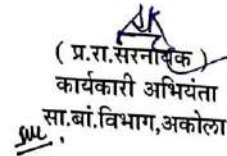 ( प्र.रा.सरनायक )
कार्यकारी अभियंता
सा.बां.विभाग,अकोला